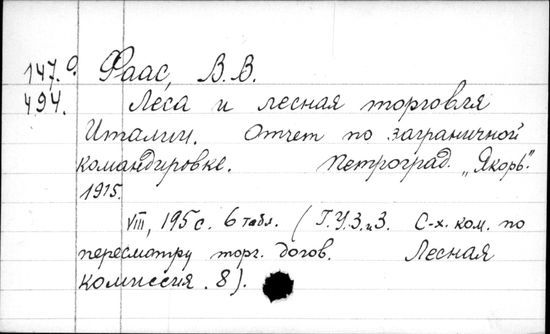 147.0. Фаас, В.В.
494. Леса и лесная торговля
Италии. Отчет по заграничной
командировке. Петроград. „Якорь".
1915.
VIII, 195 с. 6 табл. (Г.У.З.иЗ. С-х. ком. по
пересмотру торг. догов. Лесная
комиссия. 8).